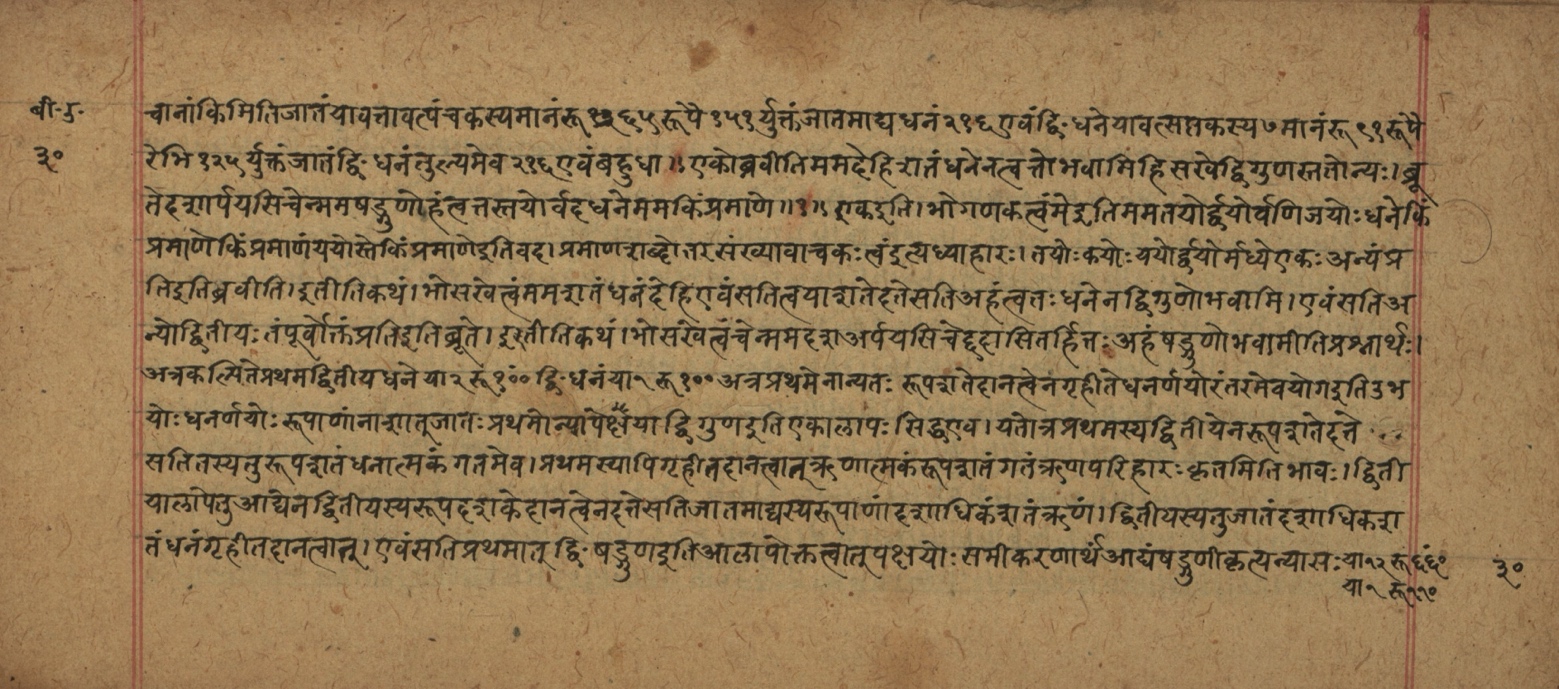 बी. ग.
३०
चानांकिमितिजातंयावत्तावत्पंचकस्यमानंरू ६५रूपै १५१र्युक्तंजातमाद्यधनं२१६एवंद्वि-धनेयावत्सप्तकस्य७मानंरू९१रूपै
रेभि१२५र्युक्तंजातंद्वि-धनंतुल्यमेव२१६एवंबहुधा॥एकोब्रवीतिममदेहिशतंधनेनत्वत्तोभवामिहिसखेद्विगुणस्ततोन्यः।ब्रू
तेदशार्पयसिचेन्ममषड्गुणोहंत्वत्तस्तयोर्वदधनेममकिंप्रमाणे॥१॥एकइति।भोगणकत्वंमेइतिममतयोर्द्वयोर्वणिजयोःधनेकिं
प्रमाणेकिंप्रमाणंययोस्तेकिंप्रमाणेइतिवद।प्रमाणशब्दोत्तरसंख्यावाचकःत्वंइत्यध्याहारः।तयोःकयोःययोर्द्वयोर्मध्येएकःअन्यंप्र
तिइतिब्रवीति।इतीतिकथं।भोसखेत्वंममशतंधनंदेहिएवंसतित्वयाशतेदत्तेसतिअहंत्वत्तःधनेनद्विगुणोभवामि।एवंसतिअ
न्योद्वितीयःतंपूर्वोक्तंप्रतिइतिब्रूते।इतीतिकथं।भोसखेत्वंचेन्ममदशअर्पयसिचेद्ददासितर्हित्वत्तःअहंषड्गुणोभवामीतिप्रश्नार्थः।
अत्रकल्पितेप्रथमद्वितीयधनेया२रू१०० द्वि-धनंया१रू१००अत्रप्रथमेनान्यतःरूपशतेदानत्वेनगृहीतेधनर्णयोरंतरमेवयोगइतिउभ
योःधनर्णयोःरूपाणांनाशात्जातःप्रथमोन्यापेक्षयाद्विगुणइतिएकालापःसिद्धएव।यतोत्रप्रथमस्यद्वितीयेनरूपशतेदत्ते
सतितस्यतुरूपशतंधनात्मकंगतमेव।प्रथमस्यापिगृहीतदानत्वात्ऋणात्मकंरूपशतंगतंऋणपरिहारःकृतमितिभावः।द्विती
यालापेतुआद्येनद्वितीयस्यरूपदशकेदानत्वेनदत्तेसतिजातमाद्यस्यरूपाणांदशाधिकंशतंऋणं।द्वितीयस्यतुजातंदशाधिकश
तंधनंगृहीतदानत्वात्।एवंसतिप्रथमात्द्वि-षड्गुणइतिआलापोक्तत्वात्पक्षयोःसमीकरणार्थंआद्यंषड्गुणीकृत्यन्यासःया१२रू६६०
या१ रू११०
३०